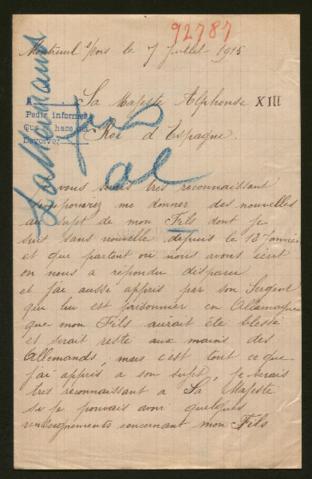 92787
Montreuil s/bois le 7 Juillet 1915
A Sa Majesté Alphonse XIII
Pedir informes
Que hace
Devolver
Roi d'Espagne
vous serais très reconnaissant
me donner des nouvelles
au sujet de mon Fils dont je
suis sans nouvelle depuis le 13 Janvier
et que partout où nous avons écrit
on nous a répondu disparu
et j'ai aussi appris par son Sergent
qui lui est prisonnier en Allemagne
que mon Fils aurait été blessé
et serait resté aux mains des
Allemands, mais c'est tout ce que
j'ai appris a son sujet, je serais
très reconnaissant a Sa Majesté
si je pouvais avoir quelques
renseignements concernant mon Fils